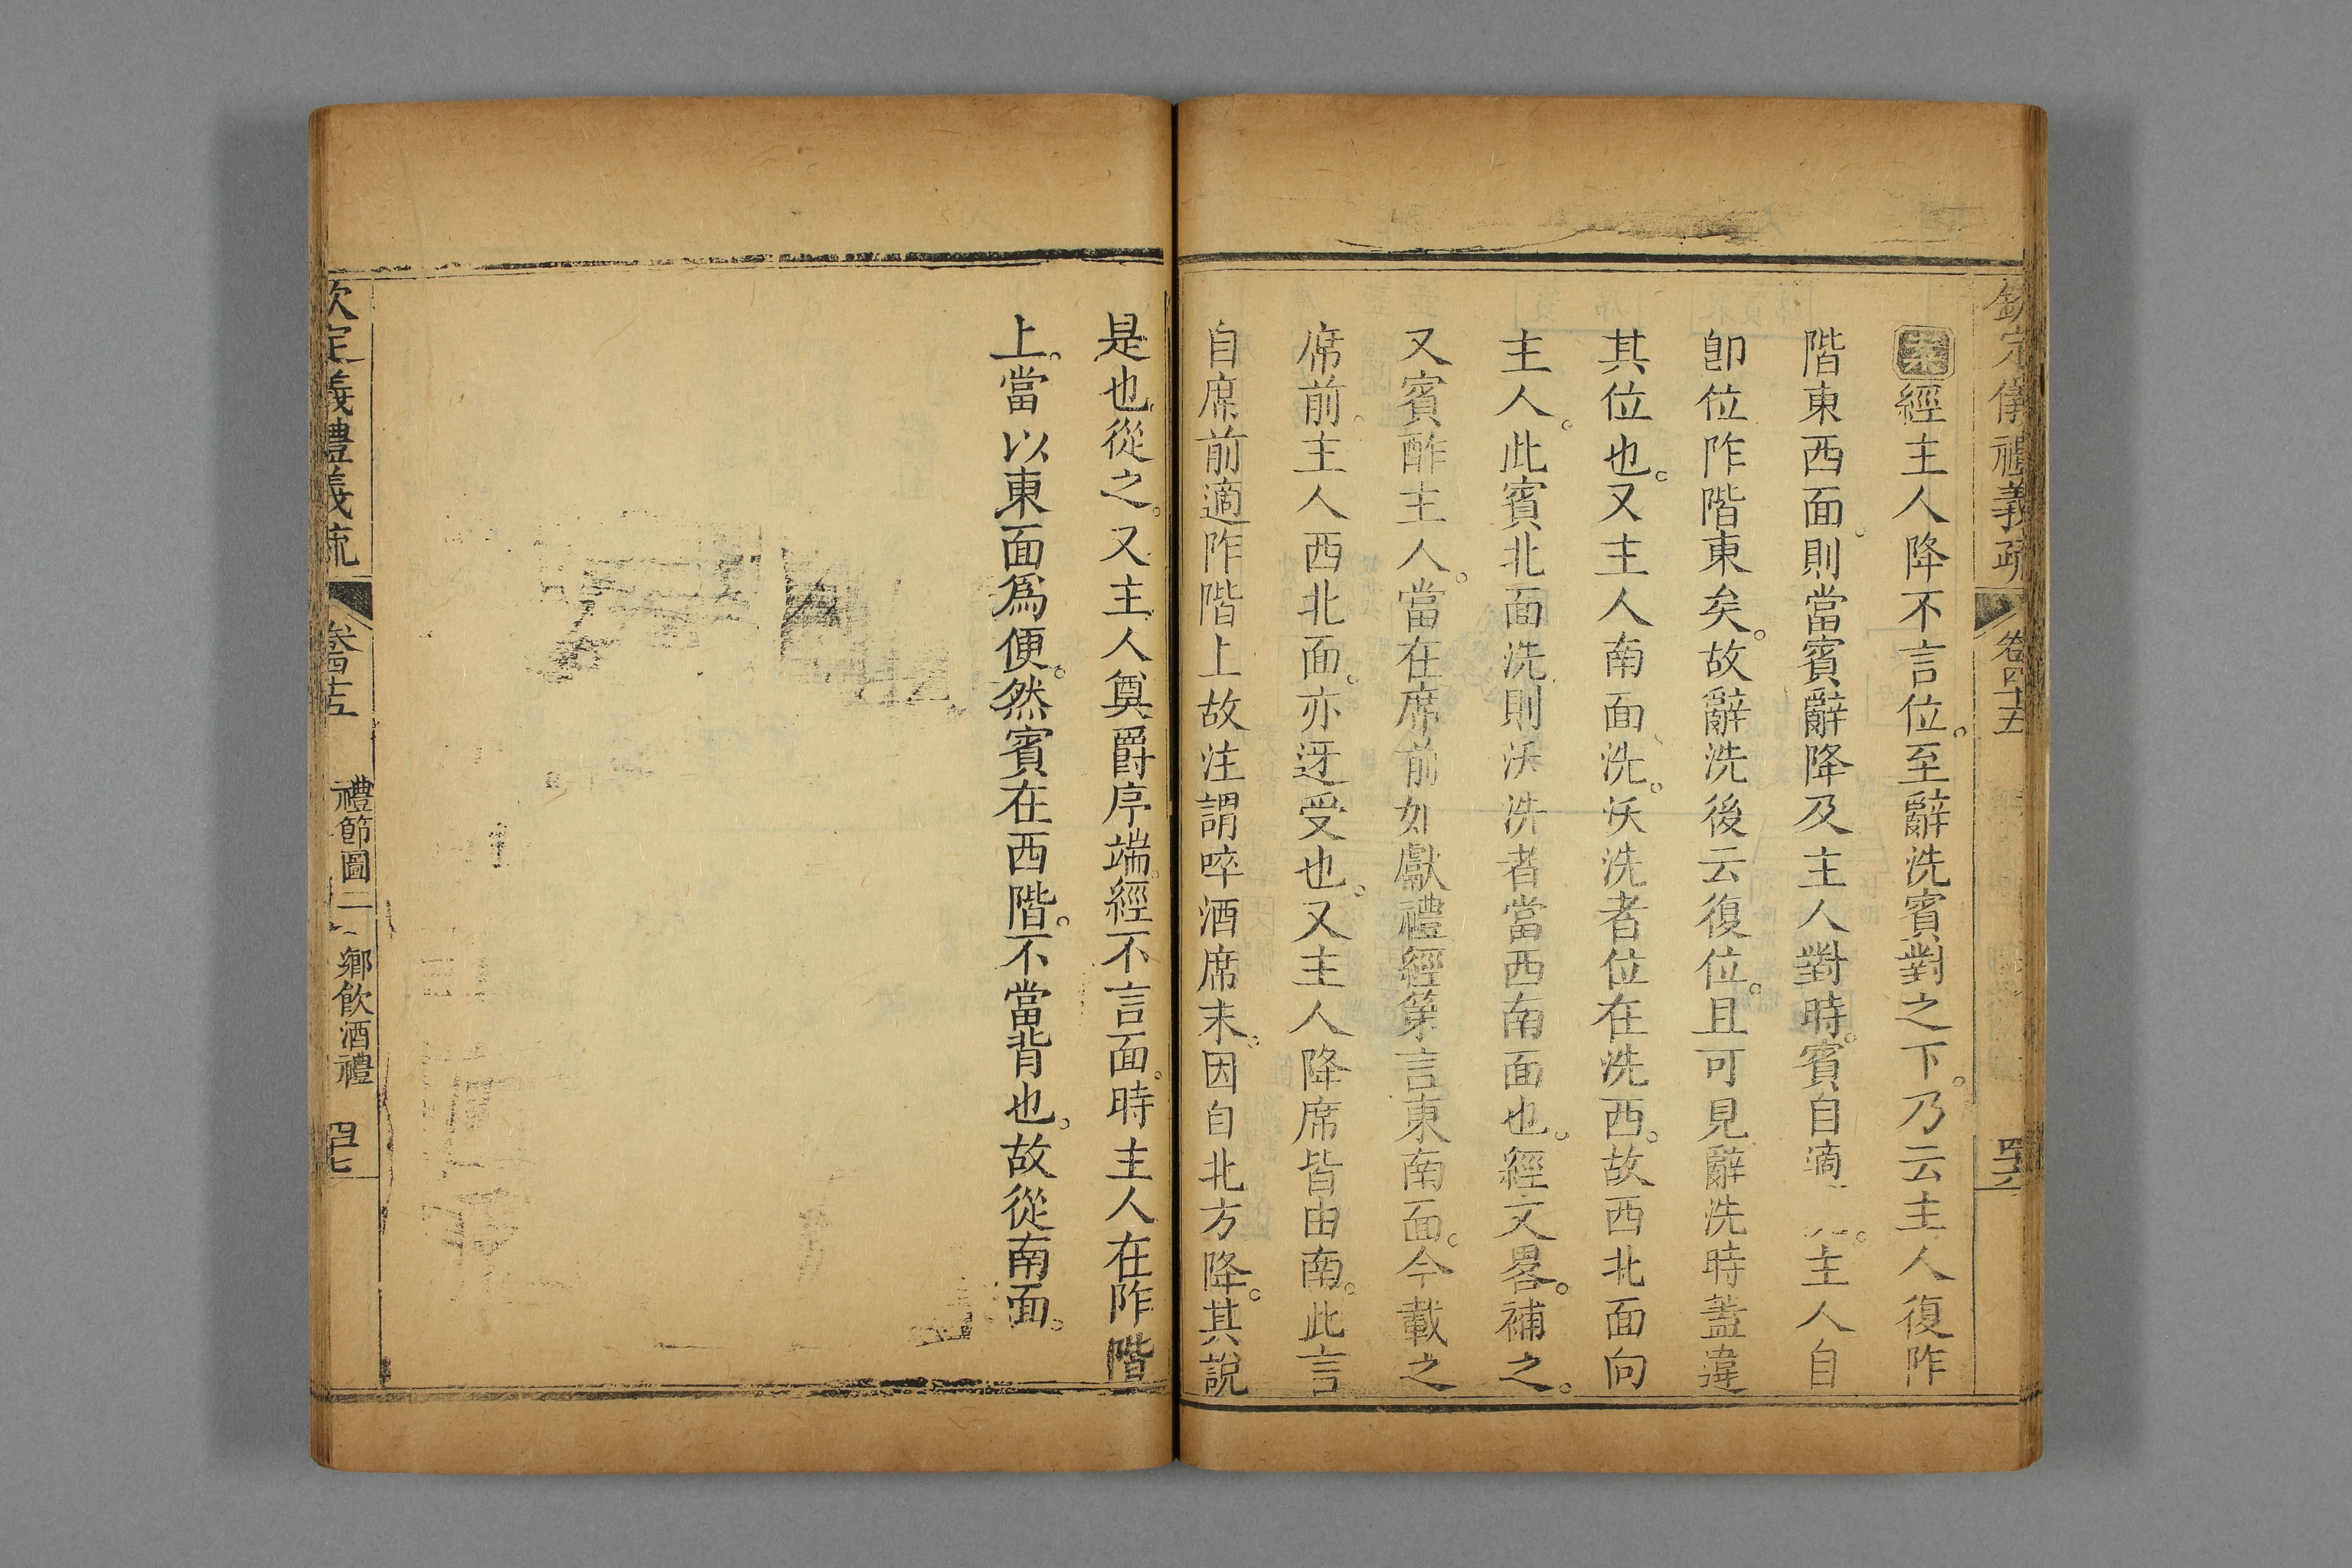 欽定儀禮義疏 卷四十五
案經主人降不言位。至辭洗賓對之下。乃云主人復阼
階東西面。則當賓辭降及主人對時。賓自適主人自
卽位阼階東矣。故辭洗後云復位。且可見辭洗時蓋違
其位也。又主人南面洗。沃洗者位在洗西。故西北面向
主人。此賓北面洗則沃洗者當西南面也。經文畧。補之。
又賓酢主人。當在席前如獻禮經第言東南面。今載之
席前。主人西北面。亦迓受也。又主人降席皆由南。此言
自席前適阼階上故注謂啐酒席末。因自北方降。其說
是也從之。又主人奠爵序端。經不言面。時主人在阼階
上。當以東面爲便。然賓在西階。不當背也。故從南面。
欽定儀禮義疏 卷四十五 禮節圖二 鄉飲酒禮 四七